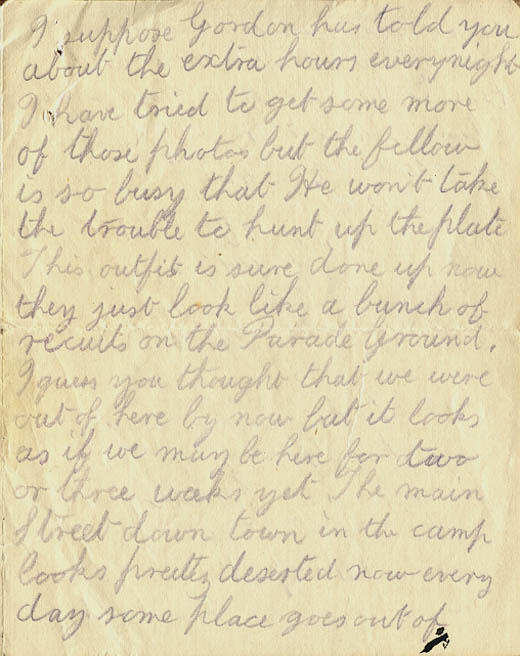 I suppose Gordon has told you
about the extra hours everynight
I have tried to get some more
of those photos but the fellow
is so busy that He won't take
the trouble to hunt up the plate
This outfit is sure done up now
they just look like a bunch of
recuits on the Parade Ground.
I guess you thought that we were
out of here by now but it looks
as if we may be here for two
or three weeks yet The main
Street down town in the camp
looks pretty deserted now every
day some place goes out of